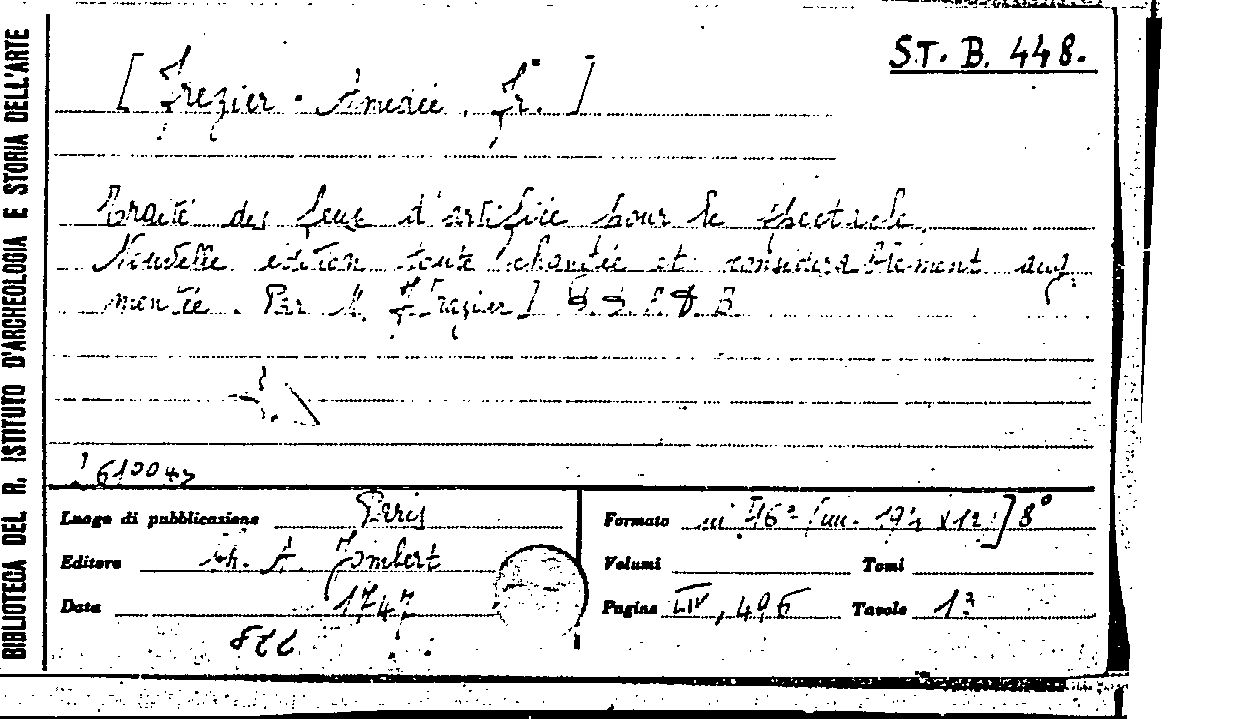 BIBLIOTECA DEL R. ISTITUTO D'ARCHEOLOGIA E STORIA DELL'ARTE
ST. B. 448.
[ Frezier - Amedée, Fr. ]
Traité des feux d'artifice pour le spectacle,
Nouvelle édition toute changée et considerablement aug
mentée. Par M. Frezier ]
Luogo di pubblicazione Paris
Formato 8°
Editore Ch. A. Jombert
Volumi Tomi
Data 1747
Pagine LIV, 496 Tavole 13